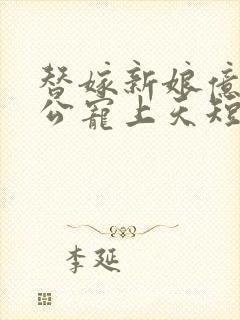 替嫁新娘億
公寵上天短
李延